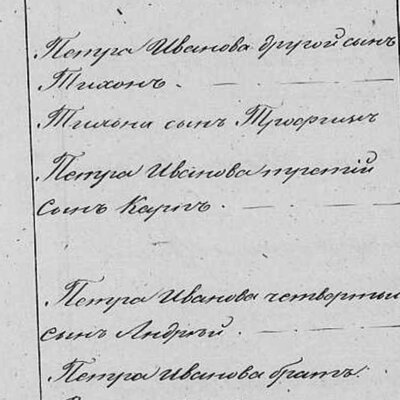 Петра Иванова другой сынъ
Тихонъ.
Тихона сынъ Трофимъ
Петра Иванова третій
сынъ Карпъ.
Петра Иванова четвертый
сынъ Андрей.
Петра Иванова братъ